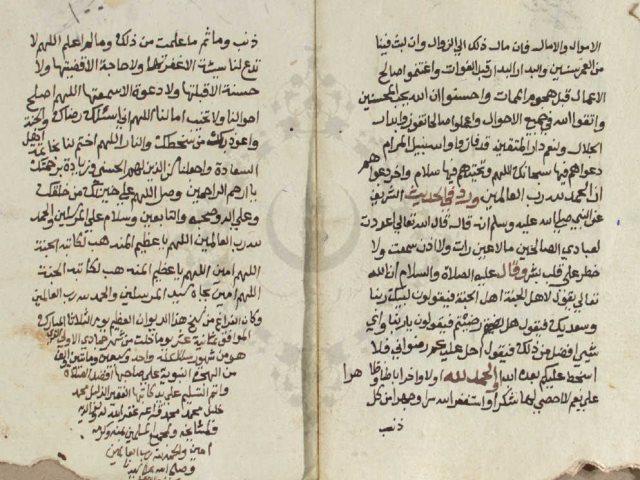 الاموال والامال فان مال ذلك الى الزوال وان لبث فينا
من العمر سنين والبدار البدار قبل الفوات واغتنموا صالح
الاعمال قبل هجوم الممات واحسنوا ان الله يحب المحسنين
واتقوا الله في جميع الاحوال واعملوا صالحا تفوزوا بدار
الجلال ولنعم دار المتقين قد فازوا واسنبيل المرام
دعواهم فيها سبحانك اللهم وتحيتهم فيها سلام واخر دعواهم
ان الحمد لله رب العالمين وروي في الحديث الشريف
عن النبي صلى الله عليه وسلم انه قال قال الله تعالى اعددت
لعبادي الصالحين مالا عين رات ولا اذن سمعت ولا
خطر على قلب بشر وقال عليه الصلاة والسلام ان الله
تعالى يقول لاهل الجنة اهل الجنة فيقولون لبيك ربنا
وسعديك فيقول هل رضيتم فيقولون يا ربنا واي
شيء افضل من ذلك فيقول احل عليكم رضواني فلا
اسخط عليكم بعده ابدا الحمد لله اولا واخرا باطنا وظاهرا
على نعم لا احصي لها شكرا واستغفر الله سرا وجهرا من كل
ذنب
ذنب وماثم ما علمت من ذلك وما لم اعلم اللهم لا
تدع لنا سيئة الا غفرتها ولا حاجة الا قضيتها ولا
حسنة الا قبلتها ولا دعوة الا سمعتها اللهم اصلح
احوالنا ولا تخيب امالنا اللهم انا نسئلك رضاك والجنة
واعوذ بك من سخطك والنار اللهم اختم لنا بخاتمة اهل
السعادة واجعلنا من الذين لهم الحسنى وزيادة برحمتك
يا ارحم الراحمين وصل اللهم على خيرتك من خلقك
وعلى اله وصحبه والتابعين وسلام على المرسلين والحمد
لله رب العالمين اللهم يا عظيم المنه هب لكاتبه الجنة
اللهم امين اللهم يا عظيم المنه هب لكاتبه الجنة
اللهم امين بجاه سيد المرسلين والحمد لله رب العالمين
وكان الفراغ من نسخ هذا الديوان العظيم يوم الثلاثا المبارك
الموافق ثمانية عشر يوما خلت من شهر جمادي الاول
هو من شهور سنة واحد وسبعين ومائتين والف
من الهجرة النبوية على صاحبها افضل الصلاة
واتم التسليم على يد كاتبها الفقير الذليل محمد
خليل محمد محمد غفر الله له ولوالديه
ولمشايخه ولجميع المسلمين بمنه وكرمه
امين والحمد لله رب العالمين
وصلى الله على سيدنا